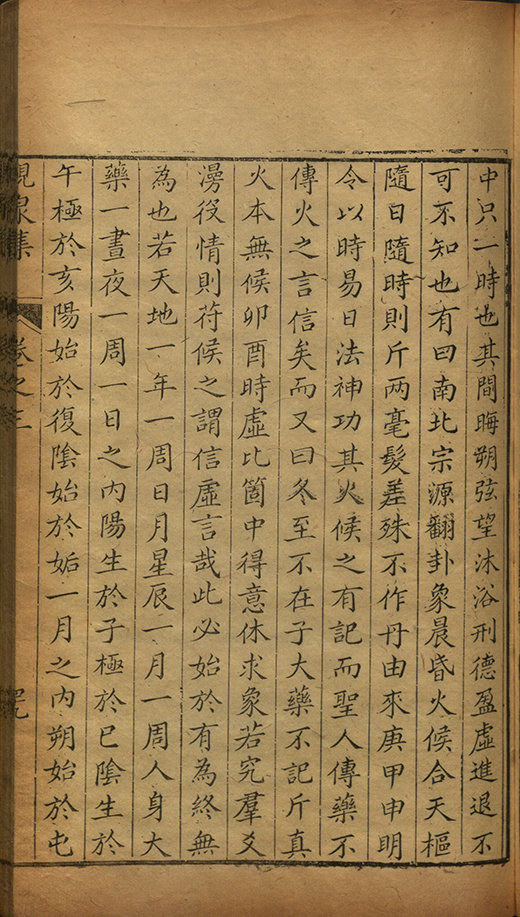 中只一時也其間晦朔弦望沐浴刑德盈虛進退不
可不知也有曰南北宗源翻卦象晨昏火候合天樞
隨日隨時則斤两毫髮差殊不作丹由來庚甲申明
令以時易日法神功其火候之有記而聖人傳藥不
傳火之言信矣而又曰冬至不在子大藥不記斤真
火本無候卯酉時虛比箇中得意休求象若究羣爻
漫役情則符候之謂信虛言哉此必始於有為終無
為也若天地一年一周日月星辰一月一周人身大
藥一晝夜一周一日之内陽生於子極於巳陰生於
午極於亥陽始於復陰始於姤一月之内朔始於屯
規象集 卷之三